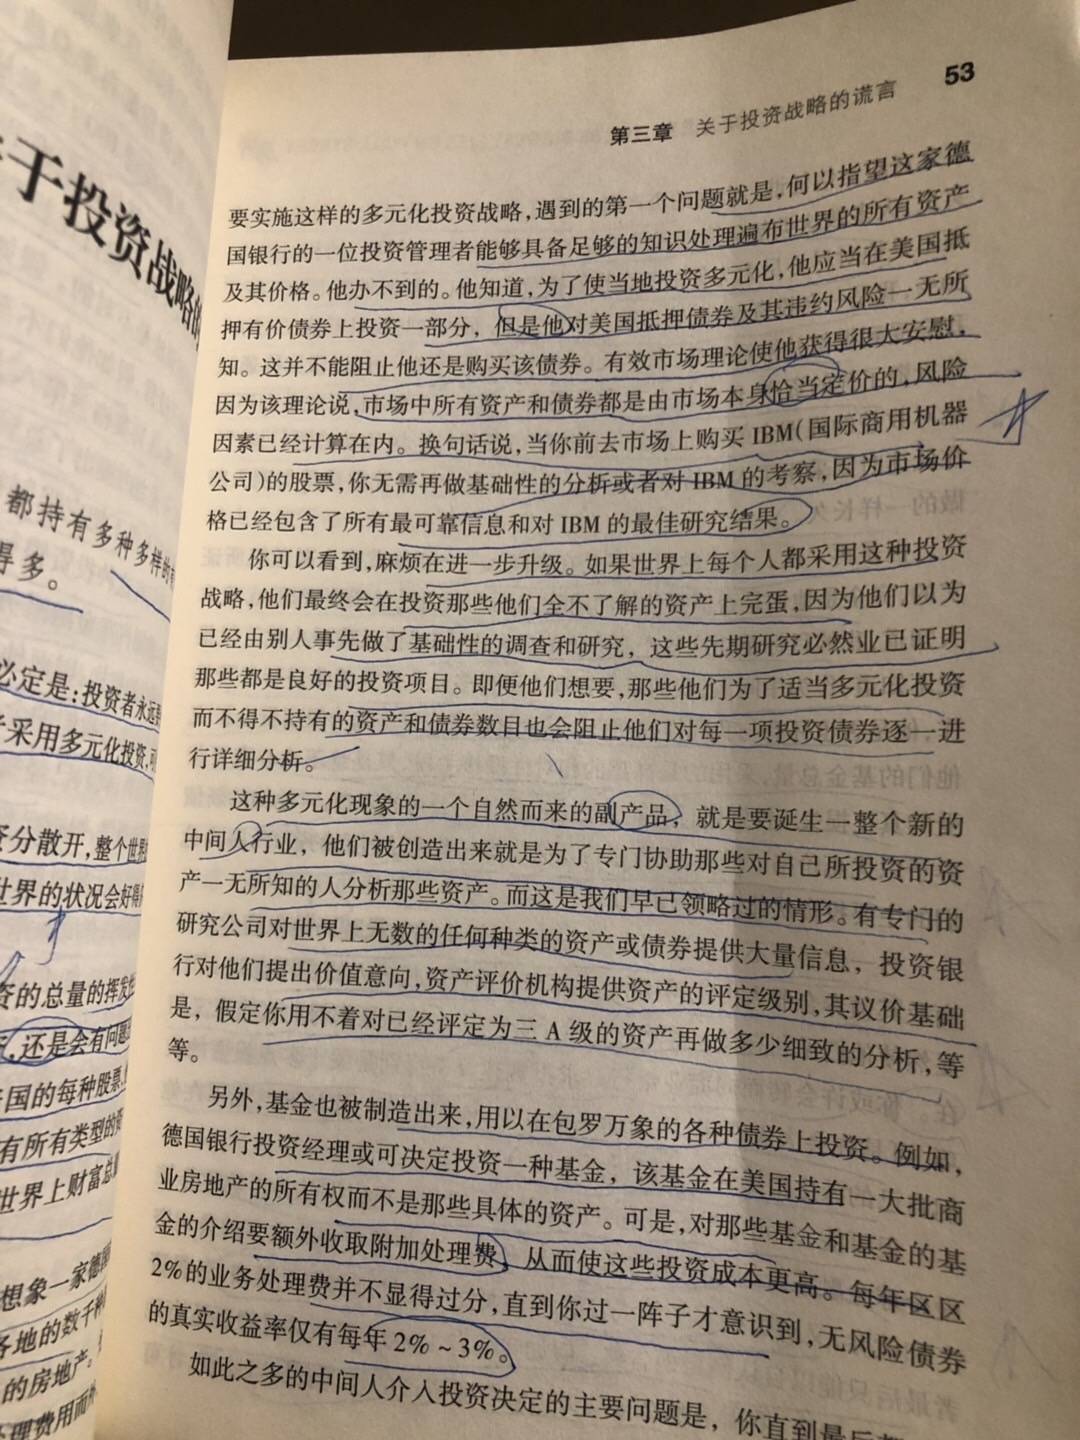 于投资战略
都持有多种多样的
得多。
必定是：投资者永远
采用多元化投资，
分散开，整个世
世界的状况会好得
资的总量的挥发性
，还是会有问题
国的每种股票
有所有类型的
世界上财富总
想象一家德国
各地的数千种
的房地产。
处理费用而
第三章 关于投资战略的谎言 53
要实施这样的多元化投资战略，遇到的第一个问题就是，何以指望这家德
国银行的一位投资管理者能够具备足够的知识处理遍布世界的所有资产
及其价格。他办不到的。他知道，为了使当地投资多元化，他应当在美国抵
押有价债券上投资一部分，但是他对美国抵押债券及其违约风险一无所
知。这并不能阻止他还是购买该债券。有效市场理论使他获得很大安慰，
因为该理论说，市场中所有资产和债券都是由市场本身恰当定价的，风险
因素已经计算在内。换句话说，当你前去市场上购买 IBM（国际商用机器
公司）的股票，你无需再做基础性的分析或者对 IBM 的考察，因为市场价
格已经包含了所有最可靠信息和对 IBM 的最佳研究结果。
你可以看到，麻烦在进一步升级。如果世界上每个人都采用这种投资
战略，他们最终会在投资那些他们全不了解的资产上完蛋，因为他们以为
已经由别人事先做了基础性的调查和研究，这些先期研究必然业已证明
那些都是良好的投资项目。即便他们想要，那些他们为了适当多元化投资
而不得不持有的资产和债券数目也会阻止他们对每一项投资债券逐一进
行详细分析。
这种多元化现象的一个自然而来的副产品，就是要诞生一整个新的
中间人行业，他们被创造出来就是为了专门协助那些对自己所投资的资
产一无所知的人分析那些资产。而这是我们早已领略过的情形。有专门的
研究公司对世界上无数的任何种类的资产或债券提供大量信息，投资银
行对他们提出价值意向，资产评价机构提供资产的评定级别，其议价基础
是，假定你用不着对已经评定为三 A 级的资产再做多少细致的分析，等
等。
另外，基金也被制造出来，用以在包罗万象的各种债券上投资。例如，
德国银行投资经理或可决定投资一种基金，该基金在美国持有一大批商
业房地产的所有权而不是那些具体的资产。可是，对那些基金和基金的基
金的介绍要额外收取附加处理费，从而使这些投资成本更高。每年区区
2%的业务处理费并不显得过分，直到你过一阵子才意识到，无风险债券
的真实收益率仅有每年 2%～3%。
如此之多的中间人介入投资决定的主要问题是，你直到最后